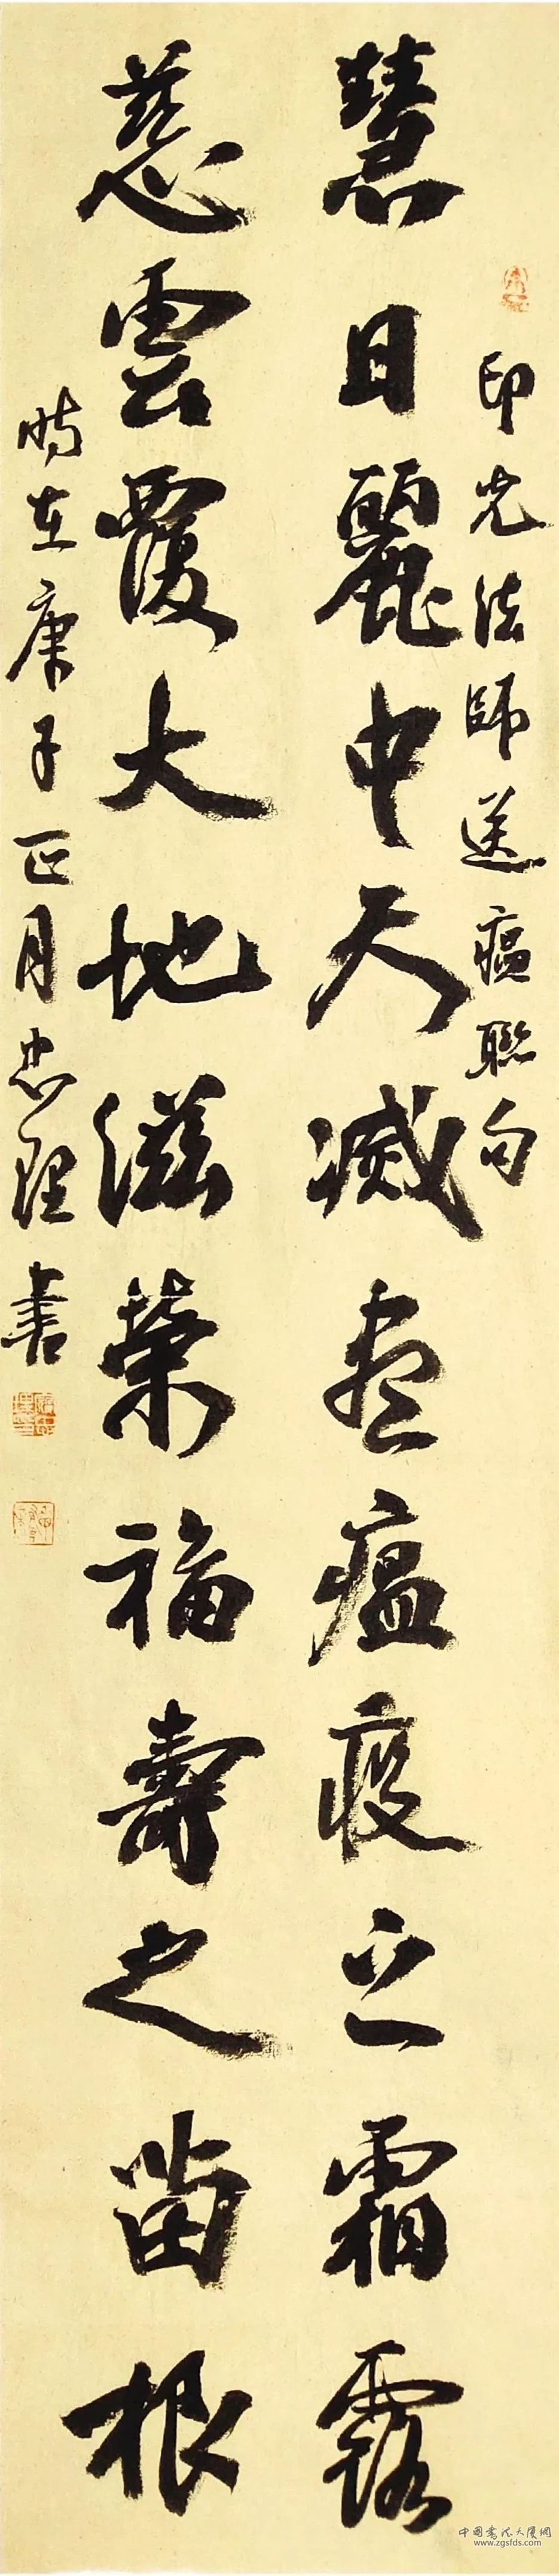 印光法師送瘟聯句
慧日麗中天滅盡瘟疫之霜露
慈雲覆大地滋榮福壽之苗根
時在庚子正月忠理書
中国书法大厦网
www.zgsfds.com